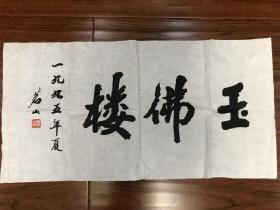 玉佛楼
一九九五年夏
茗山